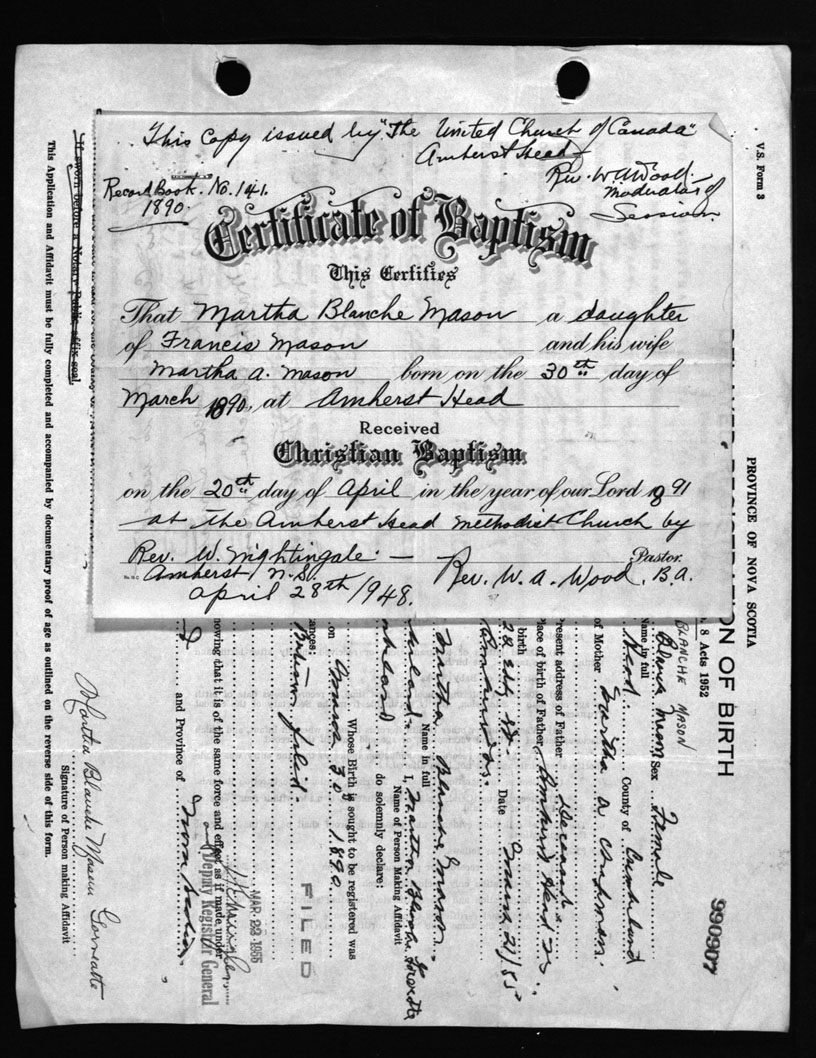 This Copy issued by "The United Church of Canada"
Amherst Head
Rev. W A Wood
Moderator of
Session.
Record Book. No. 141.
1890.
Certificate of Baptism
This Certifies
That Martha Blanche Mason a daughter
of Francis Mason and his wife
Martha A. Mason born on the 30th day of
March 1890, at Amherst Head
Received
Christian Baptism
on the 20th day of April in the year of our Lord 1891
at the Amherst Head Methodist Church by
Rev. W. Nightingale. —
Rev. W. A. Wood, B.A. Pastor.
Amherst, N.S.
April 28th, 1948.
V.S. Form 3
PROVINCE OF NOVA SCOTIA
ON OF BIRTH
8 Acts 1952
990907
BLANCHE MASON
Name in full Mason Sex Female
Head County of Cumberland
of Mother Martha A
resent address of Father Deceased
lace of birth of Father Amherst Head
birth
Date March 21/55
Amherst
Martha Blanche Mason
Name in full
I, Martha Blanche
Name of Person Making Affidavit
do solemnly declare:
Whose Birth is sought to be registered was
on March 30 1890
ances:
filed
FILED
nowing that it is of the same force and effect as if made under
MAR 23 1955
Deputy Registrar General
and Province of Nova Scotia
Martha Blanche Mason
Signature of Person making Affidavit
This Application and Affidavit must be fully completed and accompanied by documentary proof of age as outlined on the reverse side of this form.
If sworn before a Notary Public, affix seal.